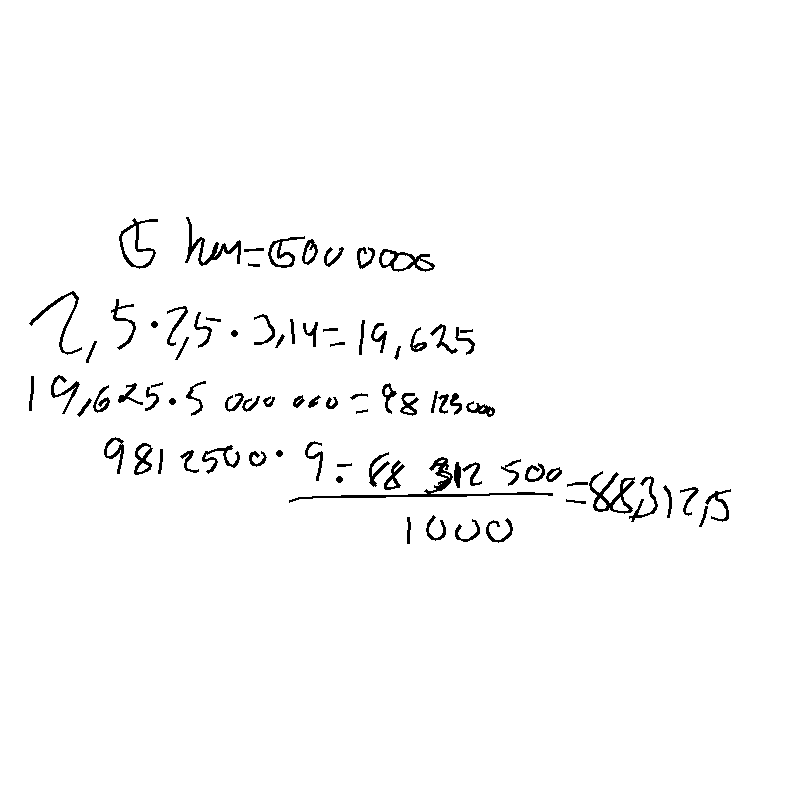 5 km=5000000
2,5·2,5·3,14=19,625
19,625·5 000 000=98 125000
9812500·9=88 312 500/1000=88312,5